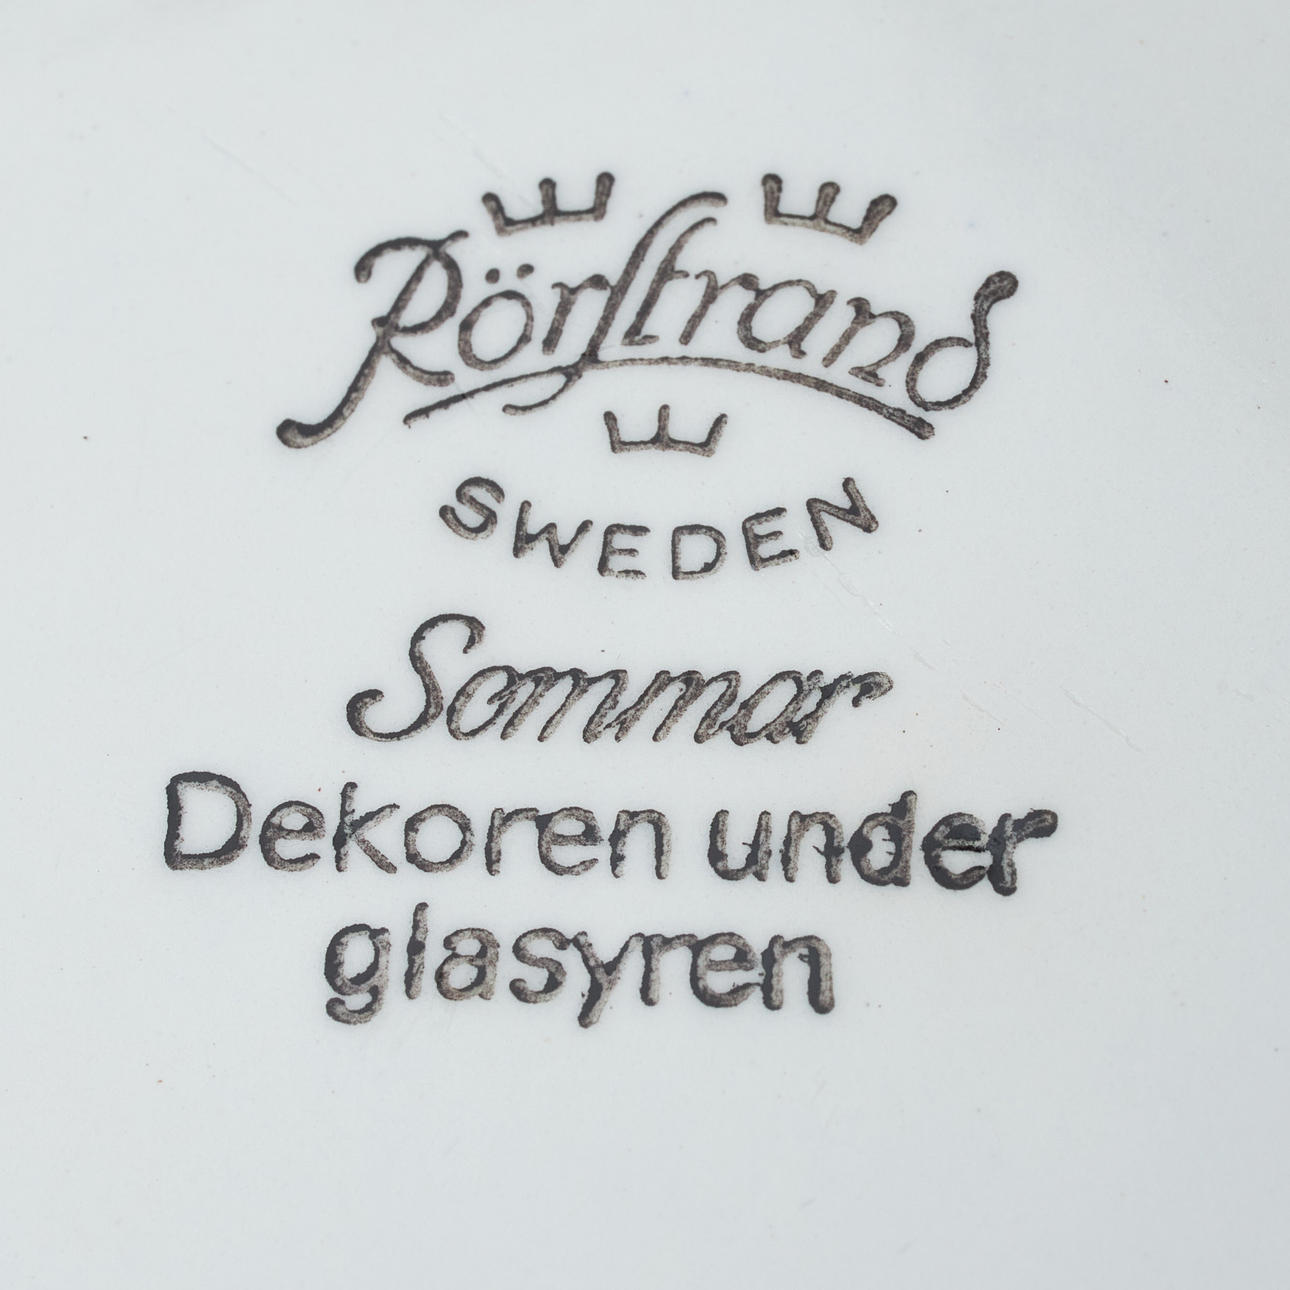 Rörstrand
SWEDEN
Sommar
Dekoren under
glasyren